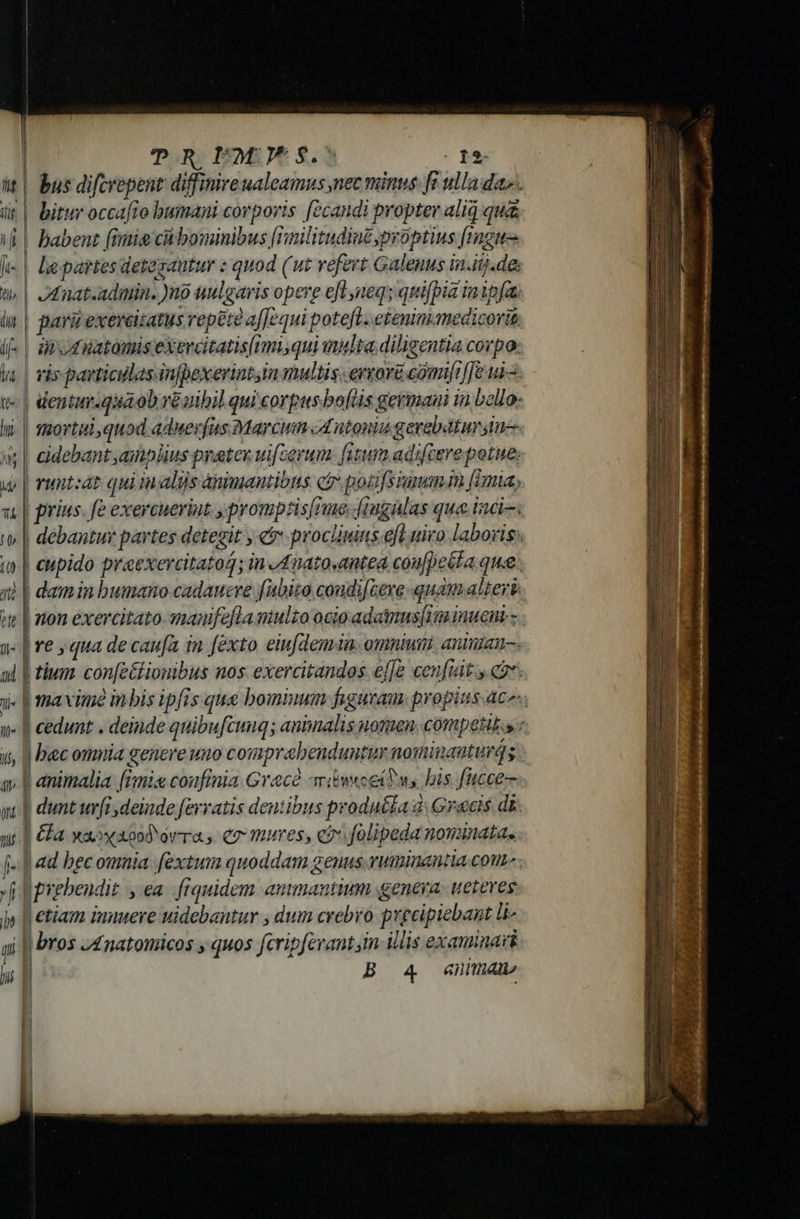 PRIMVS. 12
bus discrepent diffinire ualeamus, nec minus si ulla da-
bitur occasio humani corporis secandi propter aliq̃ quæ
habent simiæ cũ hominibus similitudinẽ, proptius singu-
læ partes detegantur: quod (ut refert Galenus in.iij.de
Anat.admin.) nõ uulgaris opere est, neq; quispiã in ipsa
parũ exercitatus repẽtè assequi potest. etenim medicorũ
in Anatomis exercitatissimi, qui multa diligentia corpo
ris particulas inspexerint, in multis errorẽ cõmisisse ui-
dentur. quã ob rẽ nihil qui corpus hostis germani in bello
mortui, quod aduersus Marcum Antoniũ gerebatur, in-
cidebant, amplius præter uiscerum situm adiscere potue-
runt: at qui in alijs animantibus & potissimum in simia,
prius se exercuerint, promptissime singulas quæ inci-
debantur partes detegit, & procliuius est uiro laboris
cupido præexercitatoq; in Anato.antea conspecta quæ-
dam in humano cadauere subito condiscere quàm alteri
non exercitato manifesta multo ocio adamussim inueni-
re, qua de causa in sexto eiusdem in omnium animan-
tium consectionibus nos exercitandos esse censuit, &
maximè in his ipsis quæ hominum figuram propius ac-
cedunt. deinde quibuscunq; animalis nomen competit,
hæc omnia genere uno compræhenduntur nominanturq;
animalia simiæ confinia Græcè πιθηκοειδῆ, his succe-
dunt ursi, deinde serratis dentibus producta à Græcis di
cta καρχαρόδοντα, & mures, & solipeda nominata.
ad hęc omnia sextum quoddam genus ruminantia com-
prehendit, ea siquidem animantium genera ueteres
etiam innuere uidebantur, dum crebro pręcipiebant li-
bros Anatomicos, quos scripserant, in illis examinari
B 4 animan-